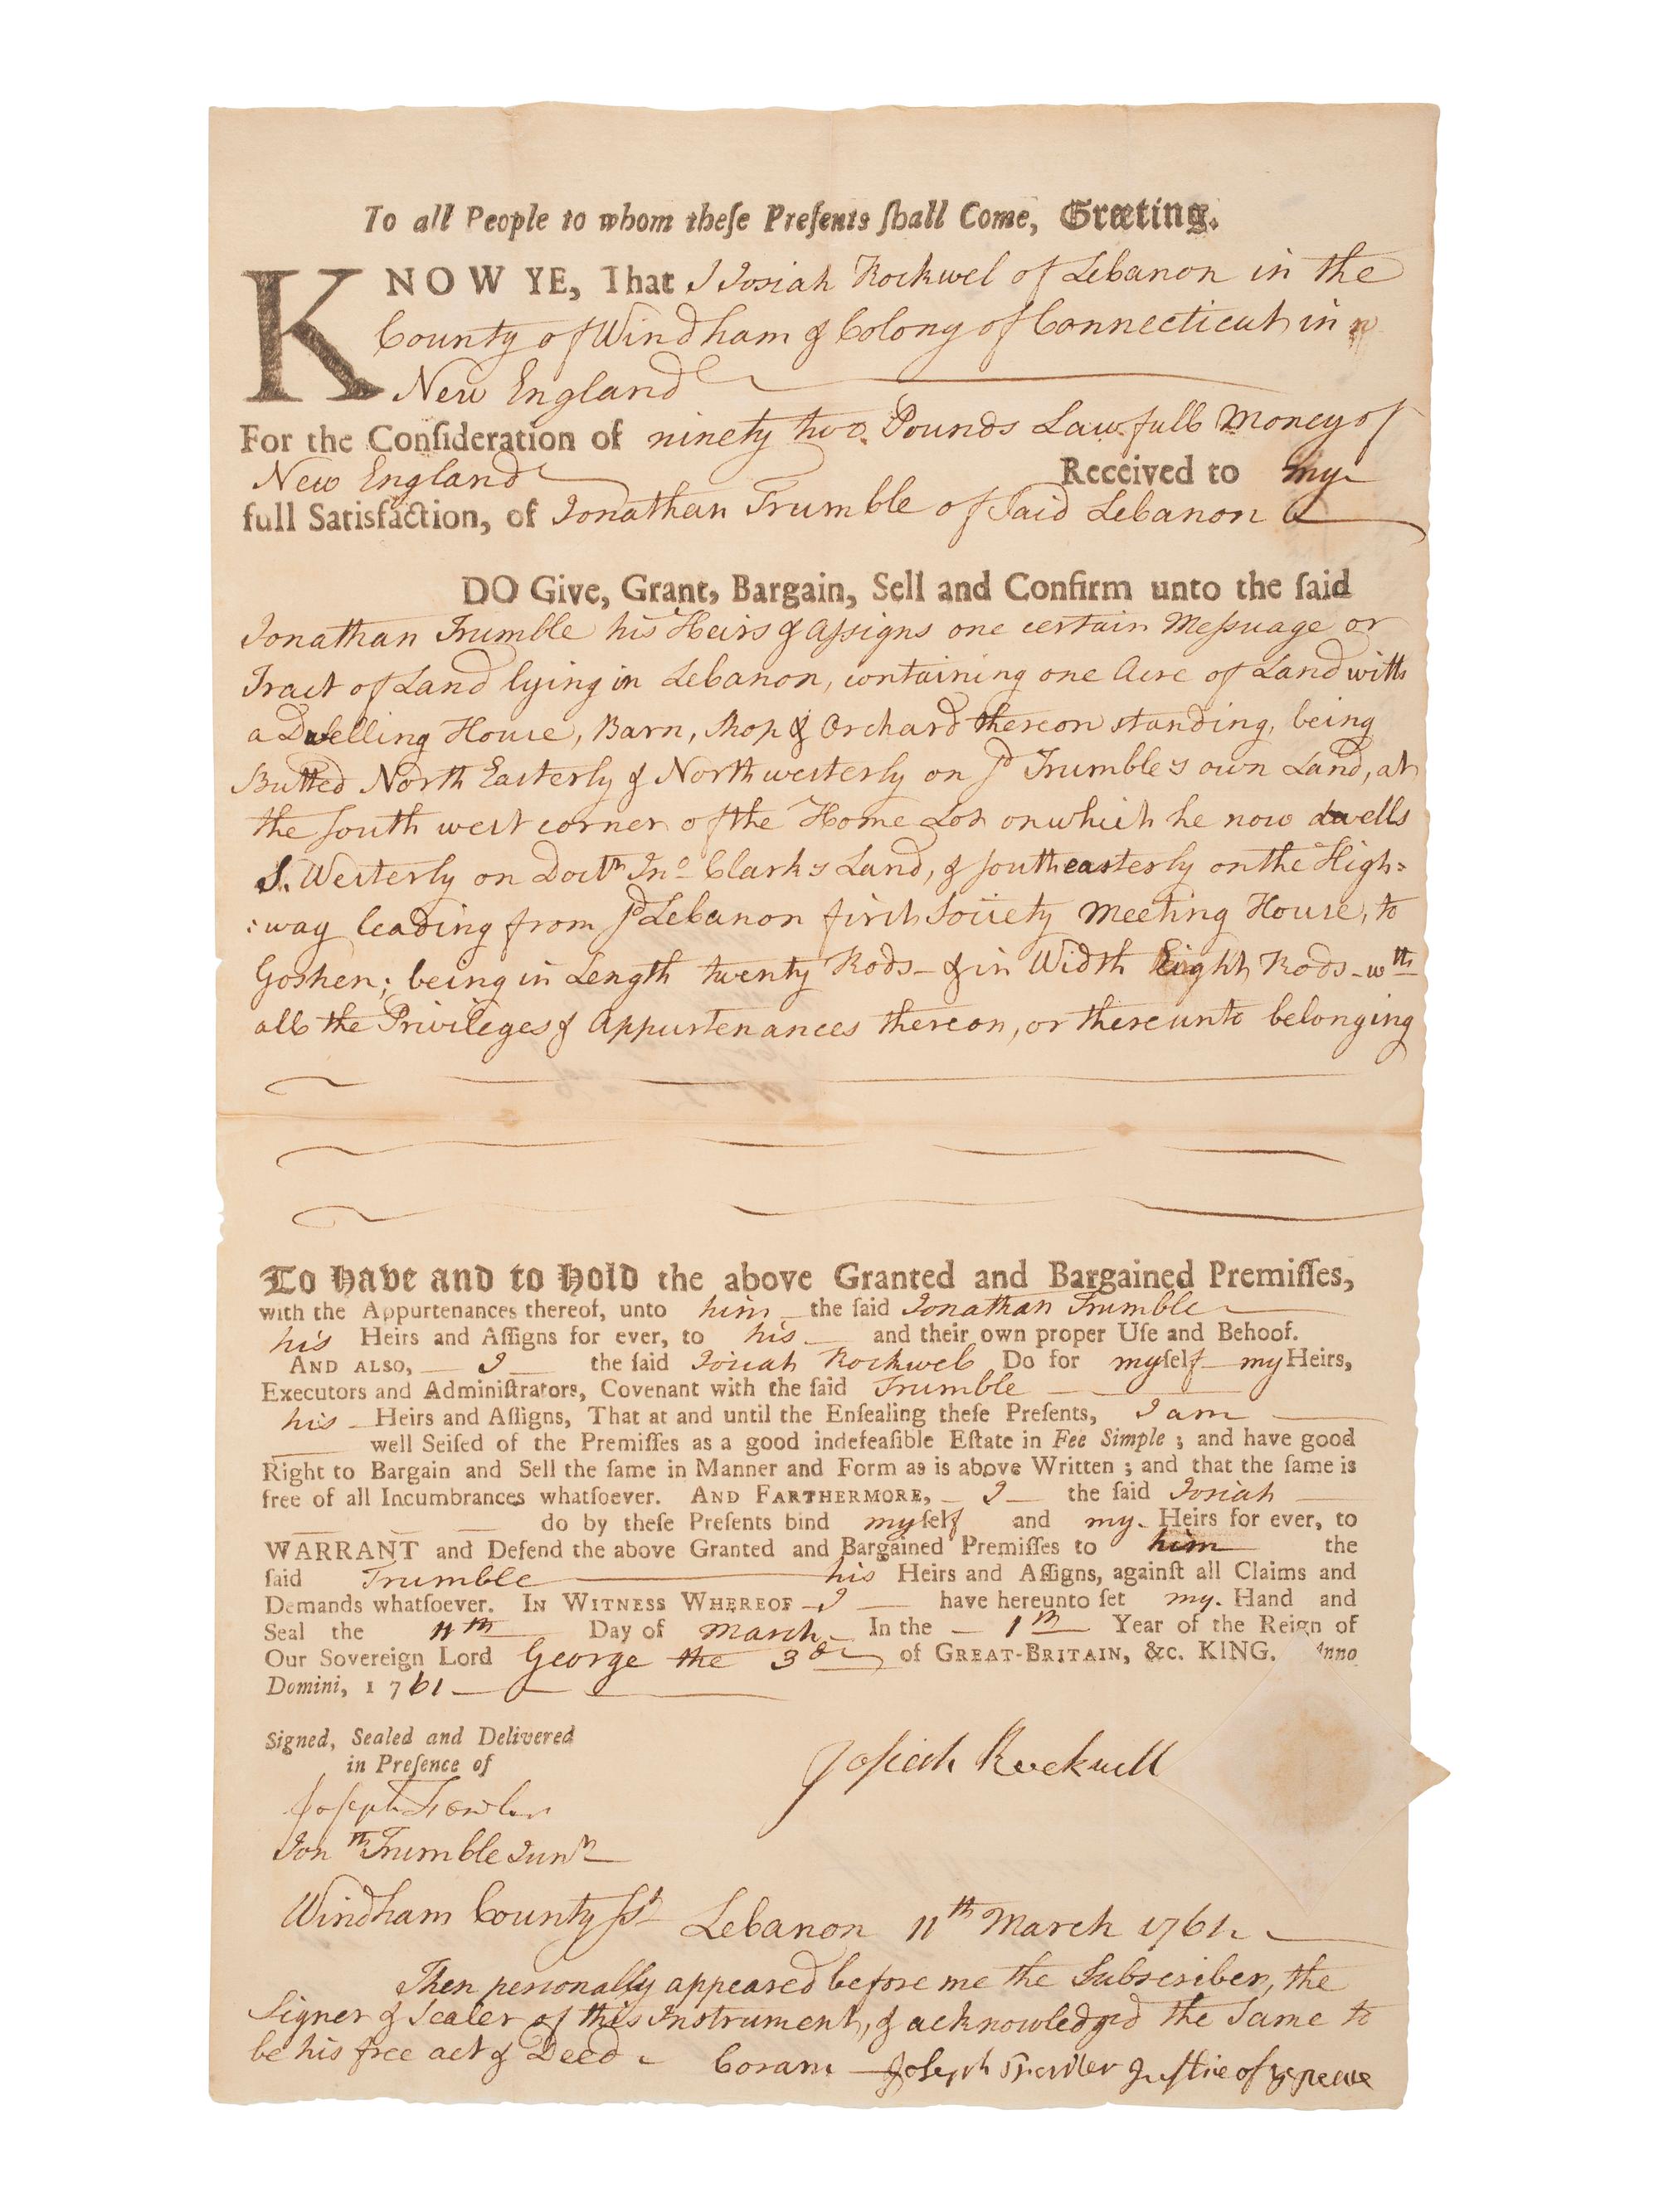 To all People to whom theſe Preſents ſhall Come, Greeting.
KNOW YE, That I Josiah Rockwel of Lebanon in the
County of Windham & Colony of Connecticut in
New England
For the Conſideration of ninety two Pounds Lawfull Money of
New England Received to my
full Satisfaction, of Jonathan Trumble of Said Lebanon
DO Give, Grant, Bargain, Sell and Confirm unto the ſaid
Jonathan Trumble his Heirs & Aſsigns one certain Meſsuage or
Tract of Land lying in Lebanon, containing one Acre of Land with
a Dwelling House, Barn, Shop & Orchard thereon standing, being
Butted North Easterly & Northwesterly on sd Trumble's own Land, at
the South west corner of the Home Lot on which he now dwells
S. Westerly on Doctr Jno Clark's Land, & southeasterly on the High=
:way leading from sd Lebanon first Society Meeting House, to
Goshen; being in Length twenty Rods - & in Width Eight Rods - wth
all the Privileges & Appurtenances thereon, or thereunto belonging
To Have and to Hold the above Granted and Bargained Premiſſes,
with the Appurtenances thereof, unto him the ſaid Jonathan Trumble
his Heirs and Aſſigns for ever, to his and their own proper Uſe and Behoof.
AND ALSO, I the ſaid Josiah Rockwel Do for myſelf my Heirs,
Executors and Adminiſtrators, Covenant with the ſaid Trumble
his Heirs and Aſſigns, That at and until the Enſealing theſe Preſents, I am
well Seiſed of the Premiſſes as a good indefeaſible Eſtate in Fee Simple ; and have good
Right to Bargain and Sell the ſame in Manner and Form as is above Written ; and that the ſame is
free of all Incumbrances whatſoever. AND FARTHERMORE, I the ſaid Josiah
do by theſe Preſents bind myſelf and my Heirs for ever, to
WARRANT and Defend the above Granted and Bargained Premiſſes to him the
ſaid Trumble his Heirs and Aſſigns, againſt all Claims and
Demands whatſoever. IN WITNESS WHEREOF I have hereunto ſet my Hand and
Seal the 11th Day of March In the 1st Year of the Reign of
Our Sovereign Lord George the 3d of GREAT-BRITAIN, &c. KING. Anno
Domini, 1761
Signed, Sealed and Delivered
in Preſence of
Josiah Rockwell
Joseph Fowler
Jonth Trumble Junr
Windham County Ss Lebanon 11th March 1761
Then personally appeared before me the Subscriber, the
Signer & Sealer of this Instrument, & acknowledged the Same to
be his free act & Deed Coram Joseph Fowler Justice of ye peace